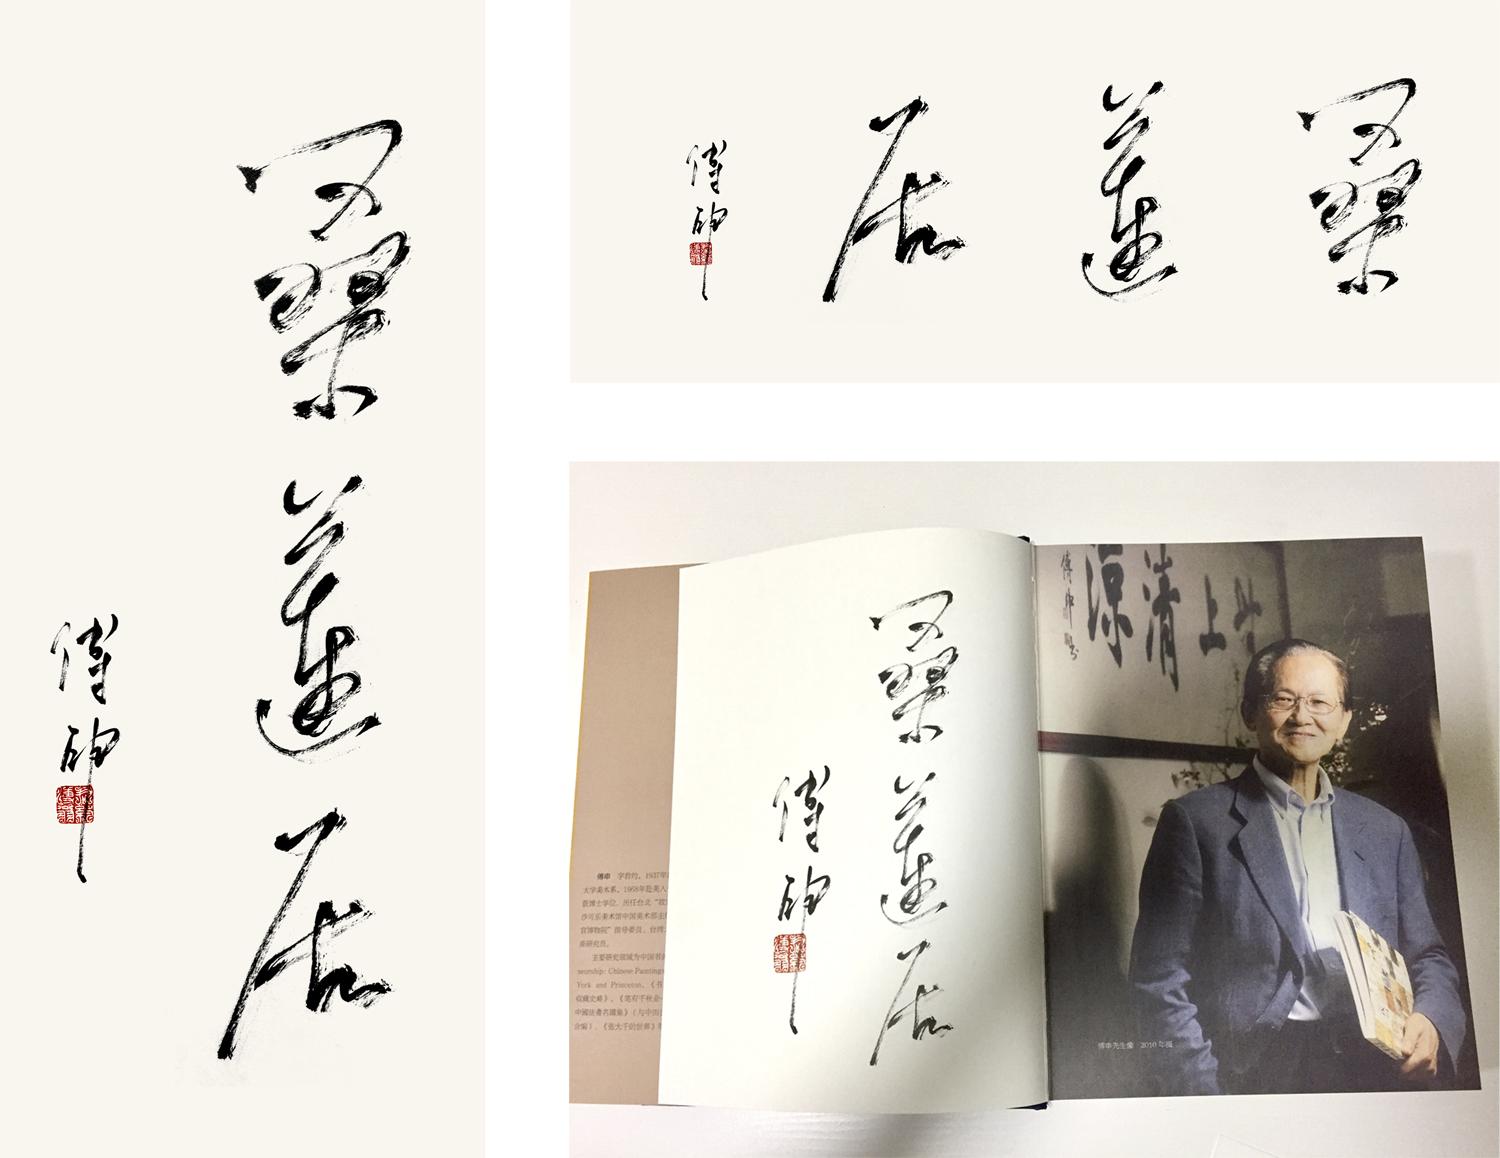 桑蓮居
傅申
桑蓮居
傅申
桑蓮居
傅申
傅申 字君约，1937年
大学美术系，1968年赴美入
获博士学位，历任台北“故
沙可乐美术馆中国美术部主
宫博物院”指导委员、台湾
座研究员。
主要研究领域为中国书
neurship: Chinese Paintings
York and Princeton、《书
收藏史略》、
合编）、《张大千的世界》等
上清涼
傅申
傅申先生像 2010年摄